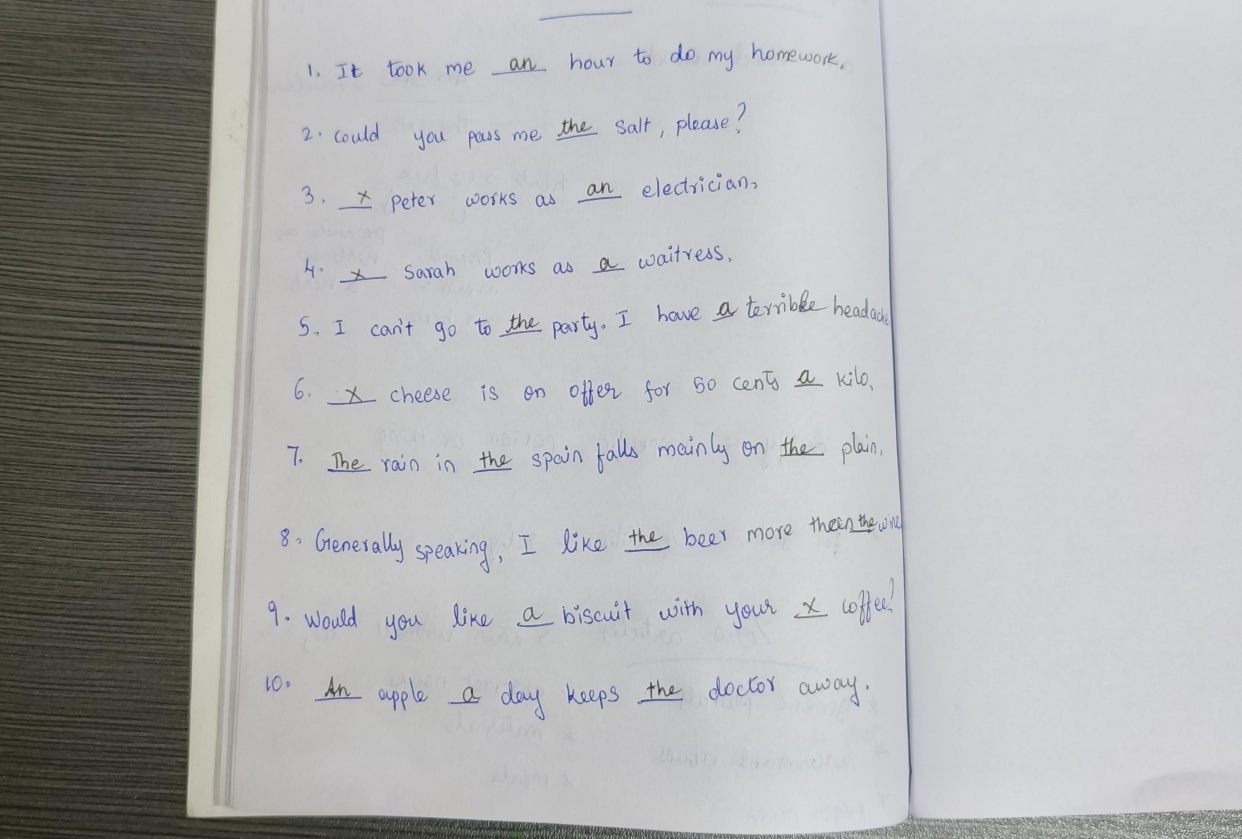 1. It took me an hour to do my homework.
2. Could you pass me the salt, please?
3. x peter works as an electrician.
4. x Sarah works as a waitress.
5. I can't go to the party. I have a terrible headache
6. x cheese is on offer for 50 cents a kilo.
7. The rain in the spain falls mainly on the plain.
8. Generally speaking, I like the beer more then the wine
9. Would you like a biscuit with your x coffee?
10. An apple a day keeps the doctor away.